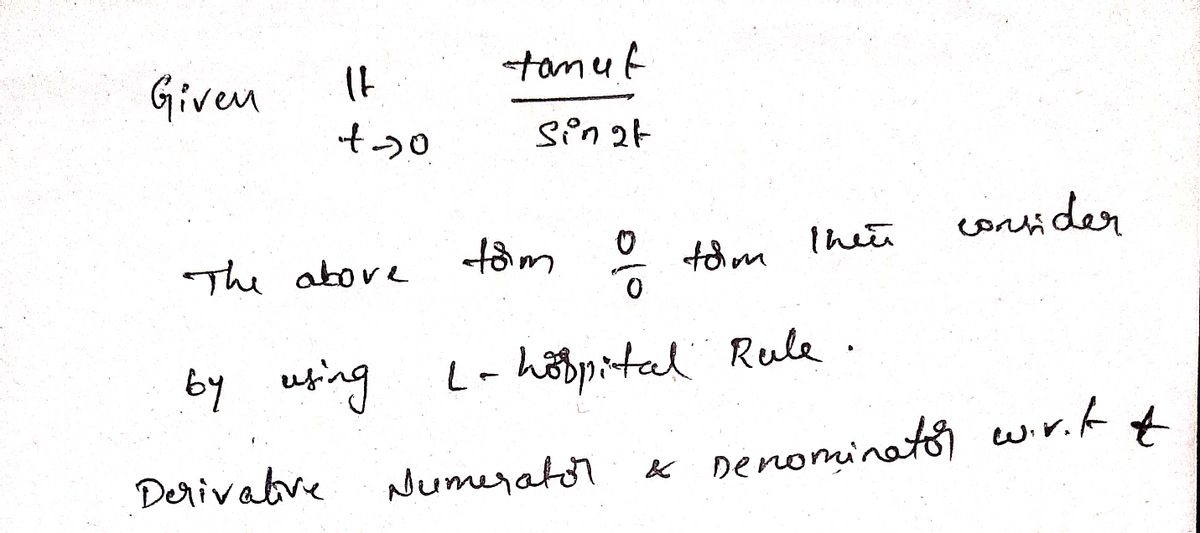 Given lt tan4t
t→0 sin2t
The above form 0/0 form then consider
by using L-hospital Rule.
Derivative Numerator & Denominator w.r.t t